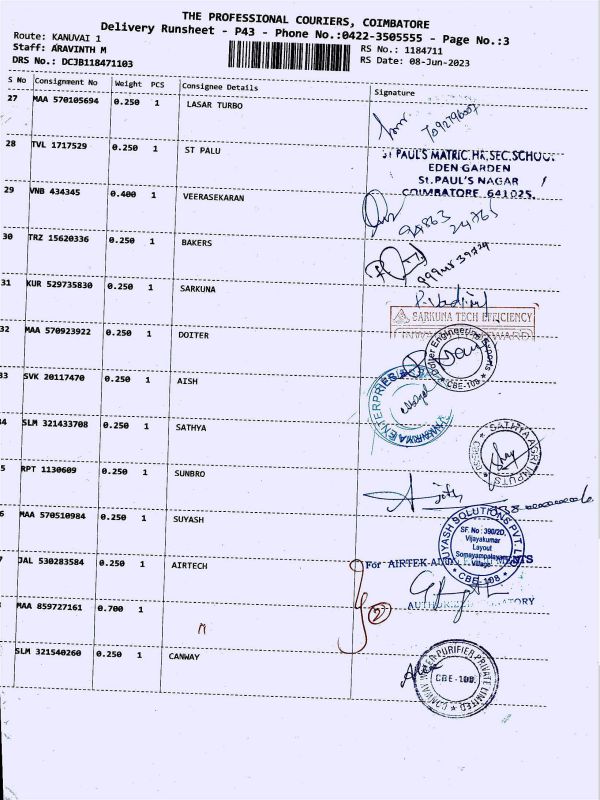 THE PROFESSIONAL COURIERS, COIMBATORE
Delivery Runsheet - P43 - Phone No.:0422-3505555 - Page No.:3
Route: KANUVAI 1
Staff: ARAVINTH M
RS No.: 1184711
DRS No.: DCJB118471103
RS Date: 08-Jun-2023
S No Consignment No Weight PCS Consignee Details Signature
27 MAA 570105694 0.250 1 LASAR TURBO
7092796007
28 TVL 1717529 0.250 1 ST PALU
ST PAUL'S MATRIC.HR.SEC.SCHOOL
EDEN GARDEN
St.PAUL'S NAGAR
COIMBATORE 641025.
29 VNB 434345 0.400 1 VEERASEKARAN
94863 24765
30 TRZ 15620336 0.250 1 BAKERS
31 KUR 529735830 0.250 1 SARKUNA
SARKUNA TECH EFFICIENCY
32 MAA 570923922 0.250 1 DOITER
Doiter Engineering Experts
* CBE-108 *
33 SVK 20117470 0.250 1 AISH
ENTERPRISES
34 SLM 321433708 0.250 1 SATHYA
SATHYA AGRI INPUTS
5 RPT 1130609 0.250 1 SUNBRO
6 MAA 570510984 0.250 1 SUYASH
SUYASH SOLUTIONS PVT. L
SF. No : 390/2D,
Vijayakumar
Layout
Somayampalayam
Village
* CBE-108 *
7 JAL 530283584 0.250 1 AIRTECH
For AIRTEK
MAA 859727161 0.700 1
2
SLM 321540260 0.250 1 CANWAY
CANWAY WATER PURIFIER PRIVATE LIMITED
CBE-108